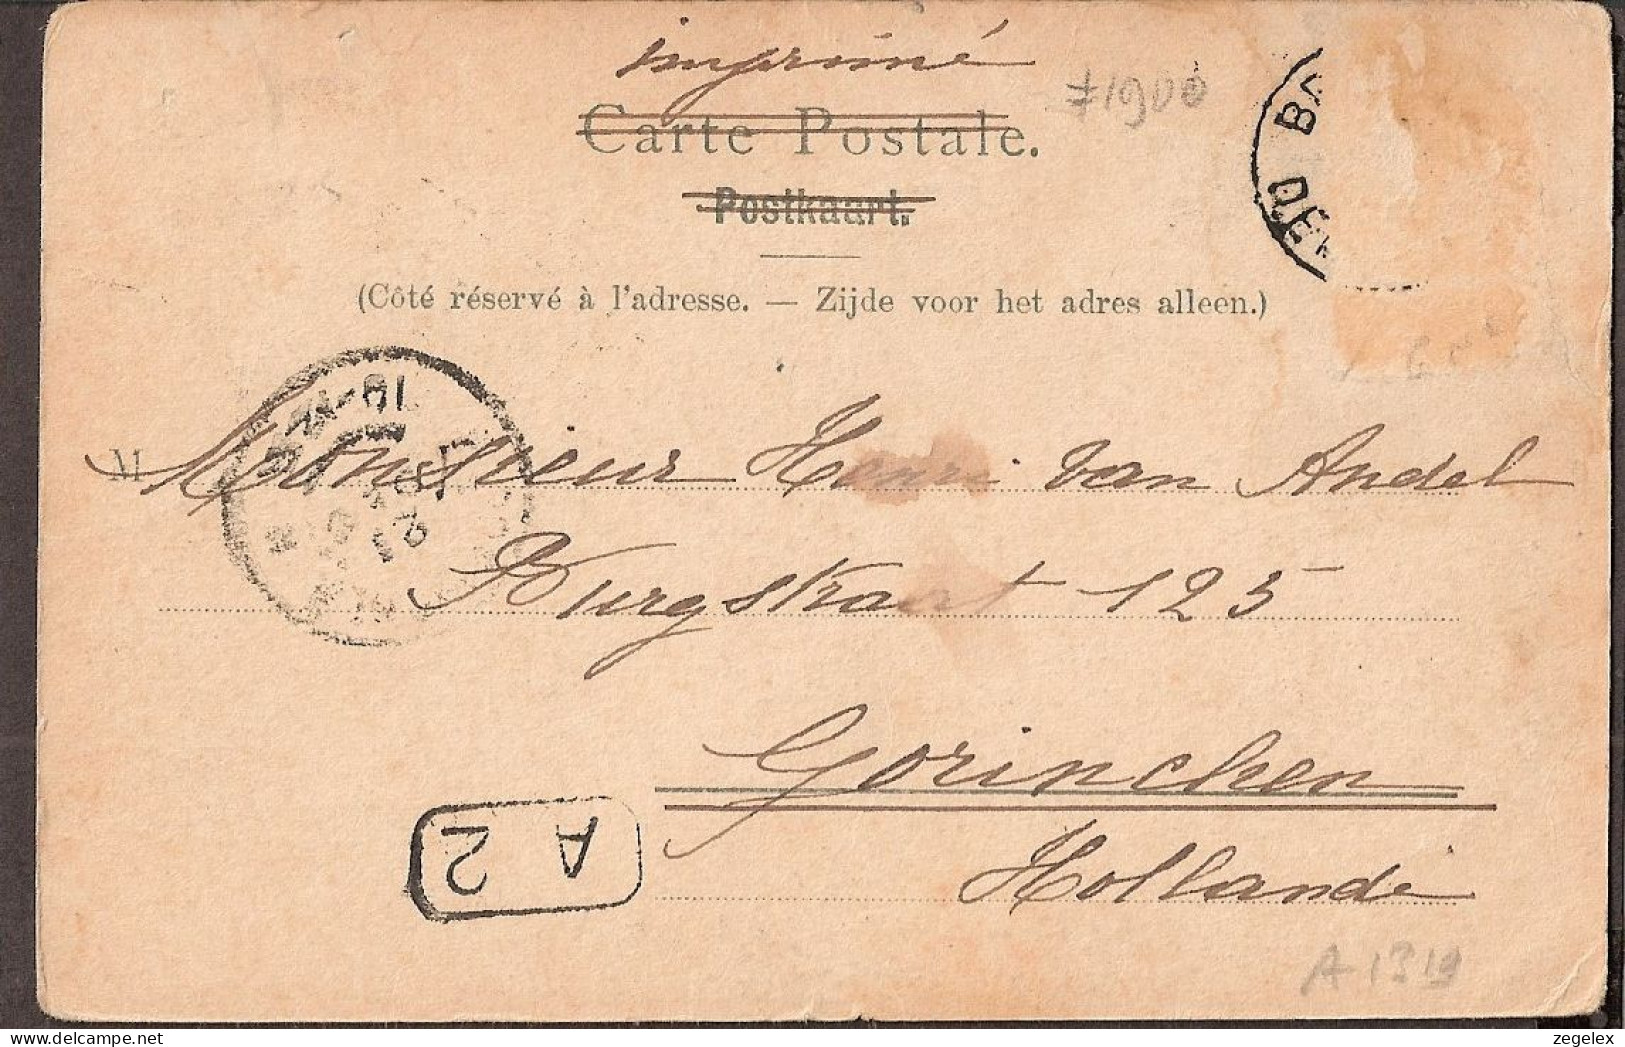 imprimé
Carte Postale.
≠1900
Postkaart.
(Côté réservé à l'adresse. — Zijde voor het adres alleen.)
M Monsieur Henri van Andel
Burgstraat 125
Gorinchen
Hollande
A 2
A 1319
zegelex